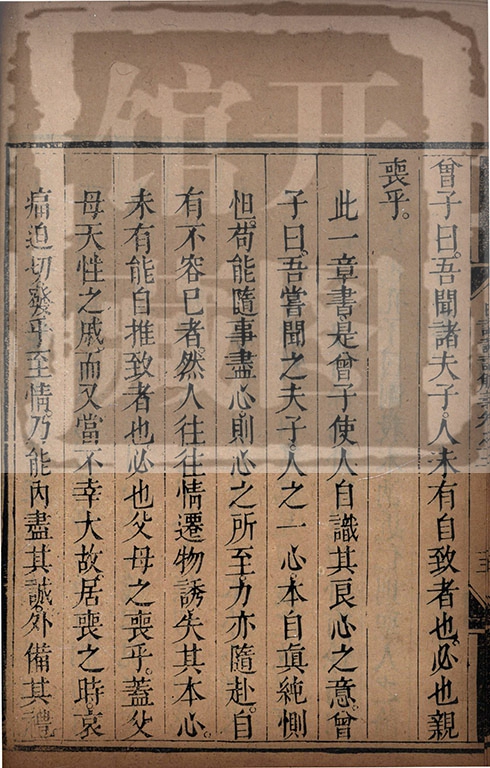 曾子曰吾聞諸夫子人未有自致者也必也親
喪乎。
此一章書是曾子使人自識其良心之意曾
子曰吾嘗聞之夫子人之一心本自真純惻
怛苟能隨事盡心則心之所至力亦隨赴自
有不容已者然人往往情遷物誘失其本心
未有能自推致者也必也父母之喪乎蓋父
母天性之戚而又當不幸大故居喪之時哀
痛迫切發乎至情乃能內盡其誠外備其禮